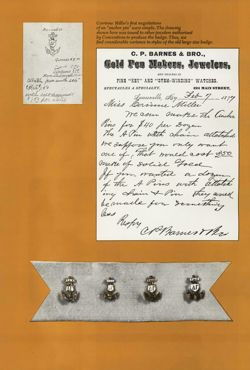 Corinne Miller's first negotiations
of an "anchor pin" were simple. The drawing
shown here was issued to other jewelers authorized
by Convention to produce the badge. Thus, we
find considerable variance in styles of the old large size badge.
C. P. BARNES & BRO.,
Gold Pen Makers, Jewelers,
AND DEALERS IN
FINE "KEY" AND "STEM-WINDING" WATCHES.
SPECTACLES A SPECIALTY. MAIN STREET,
Louisville, Ky. Feb 7 1879
Miss Corinne Miller
We can make the Anchor
Pins for $40 per dozen
The A Pin with chain attached
we suppose you only want
one of, that would cost
made of solid Gold
If you wanted a dozen
of the A Pins with
chain & Pin they would
be made for something
less
Respy
C P Barnes & Bro